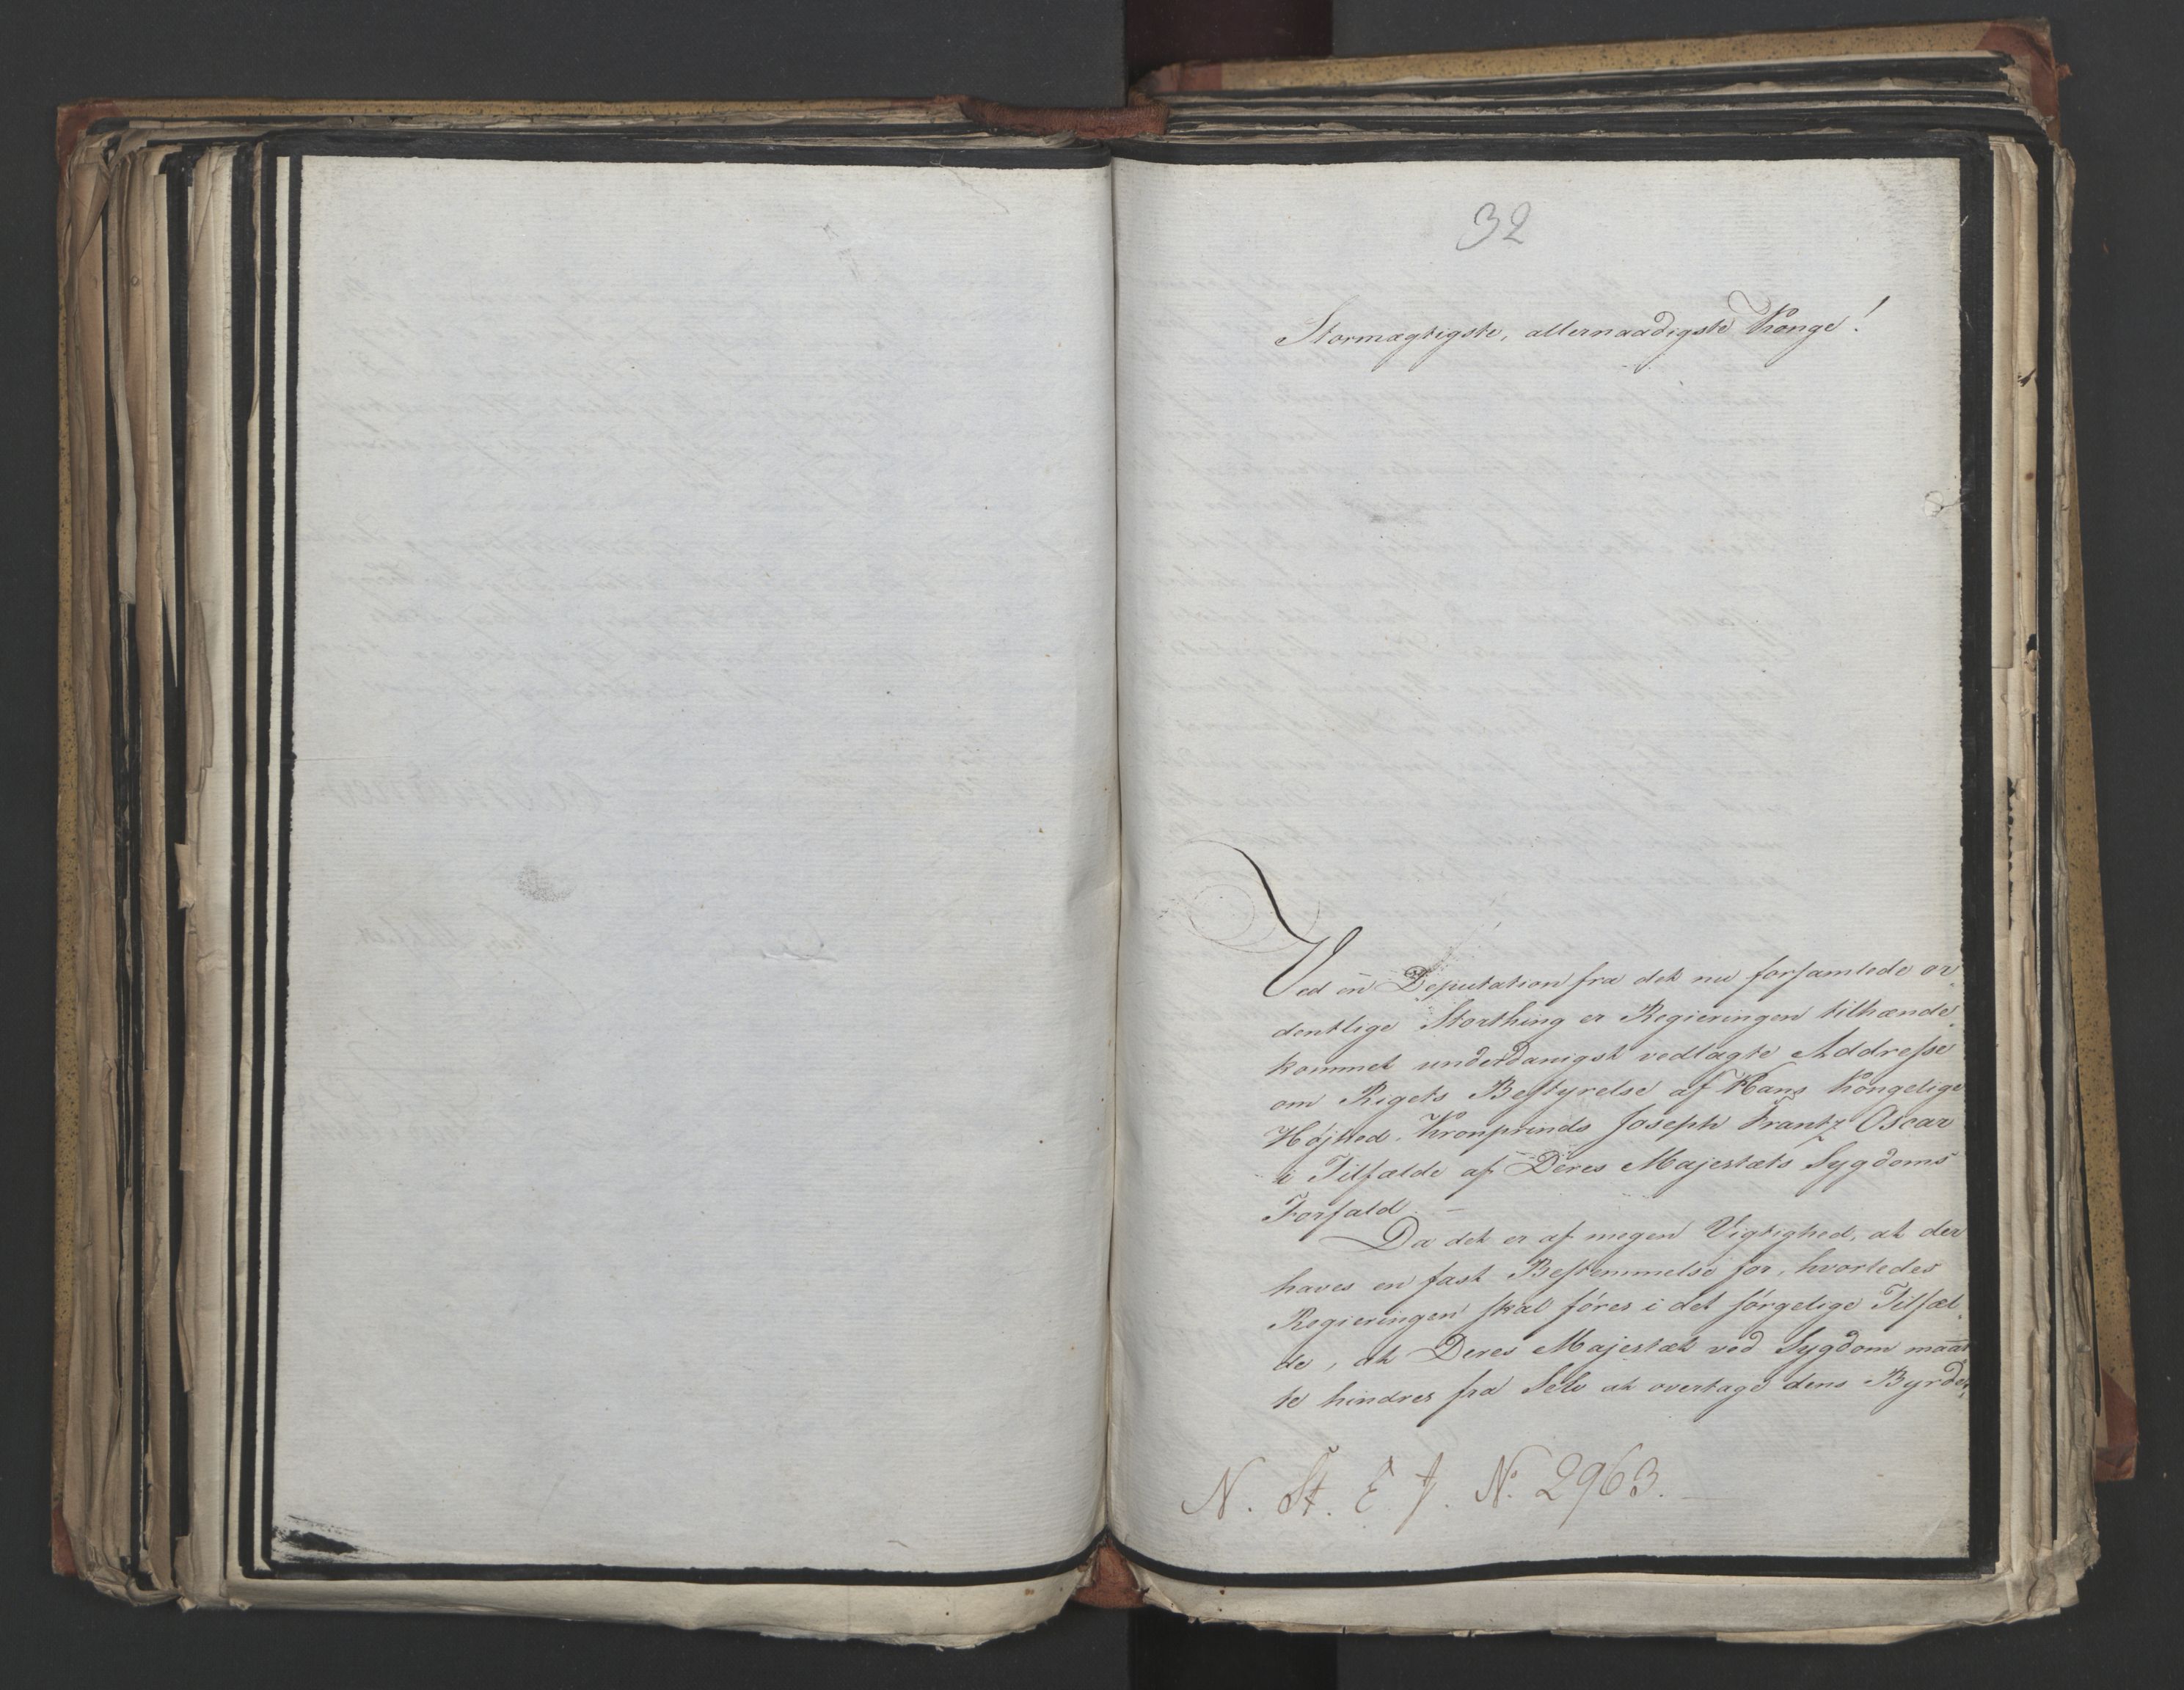 32
Stormægtigste, allernaadigste Konge!
Ved en Deputation fra det nu forsamlede or-
dentlige Storthing er Regieringen tilhænde-
kommet underdanigst vedlagte Addresse
om Rigets Bestyrelse af Hans Kongelige
Højhed, Kronprinds Joseph Frantz Oscar
i Tilfælde af Deres Majestæts Sygdoms
Forfald. —
Da det er af megen Vigtighed, at der
haves en fast Bestemmelse for, hvorledes
Regieringen skal føres i det sørgelige Tilfæl-
de, at Deres Majestæt ved Sygdom maat-
te hindres fra Selv at overtage dens Byrder,
N. St. E. J. No. 2963.